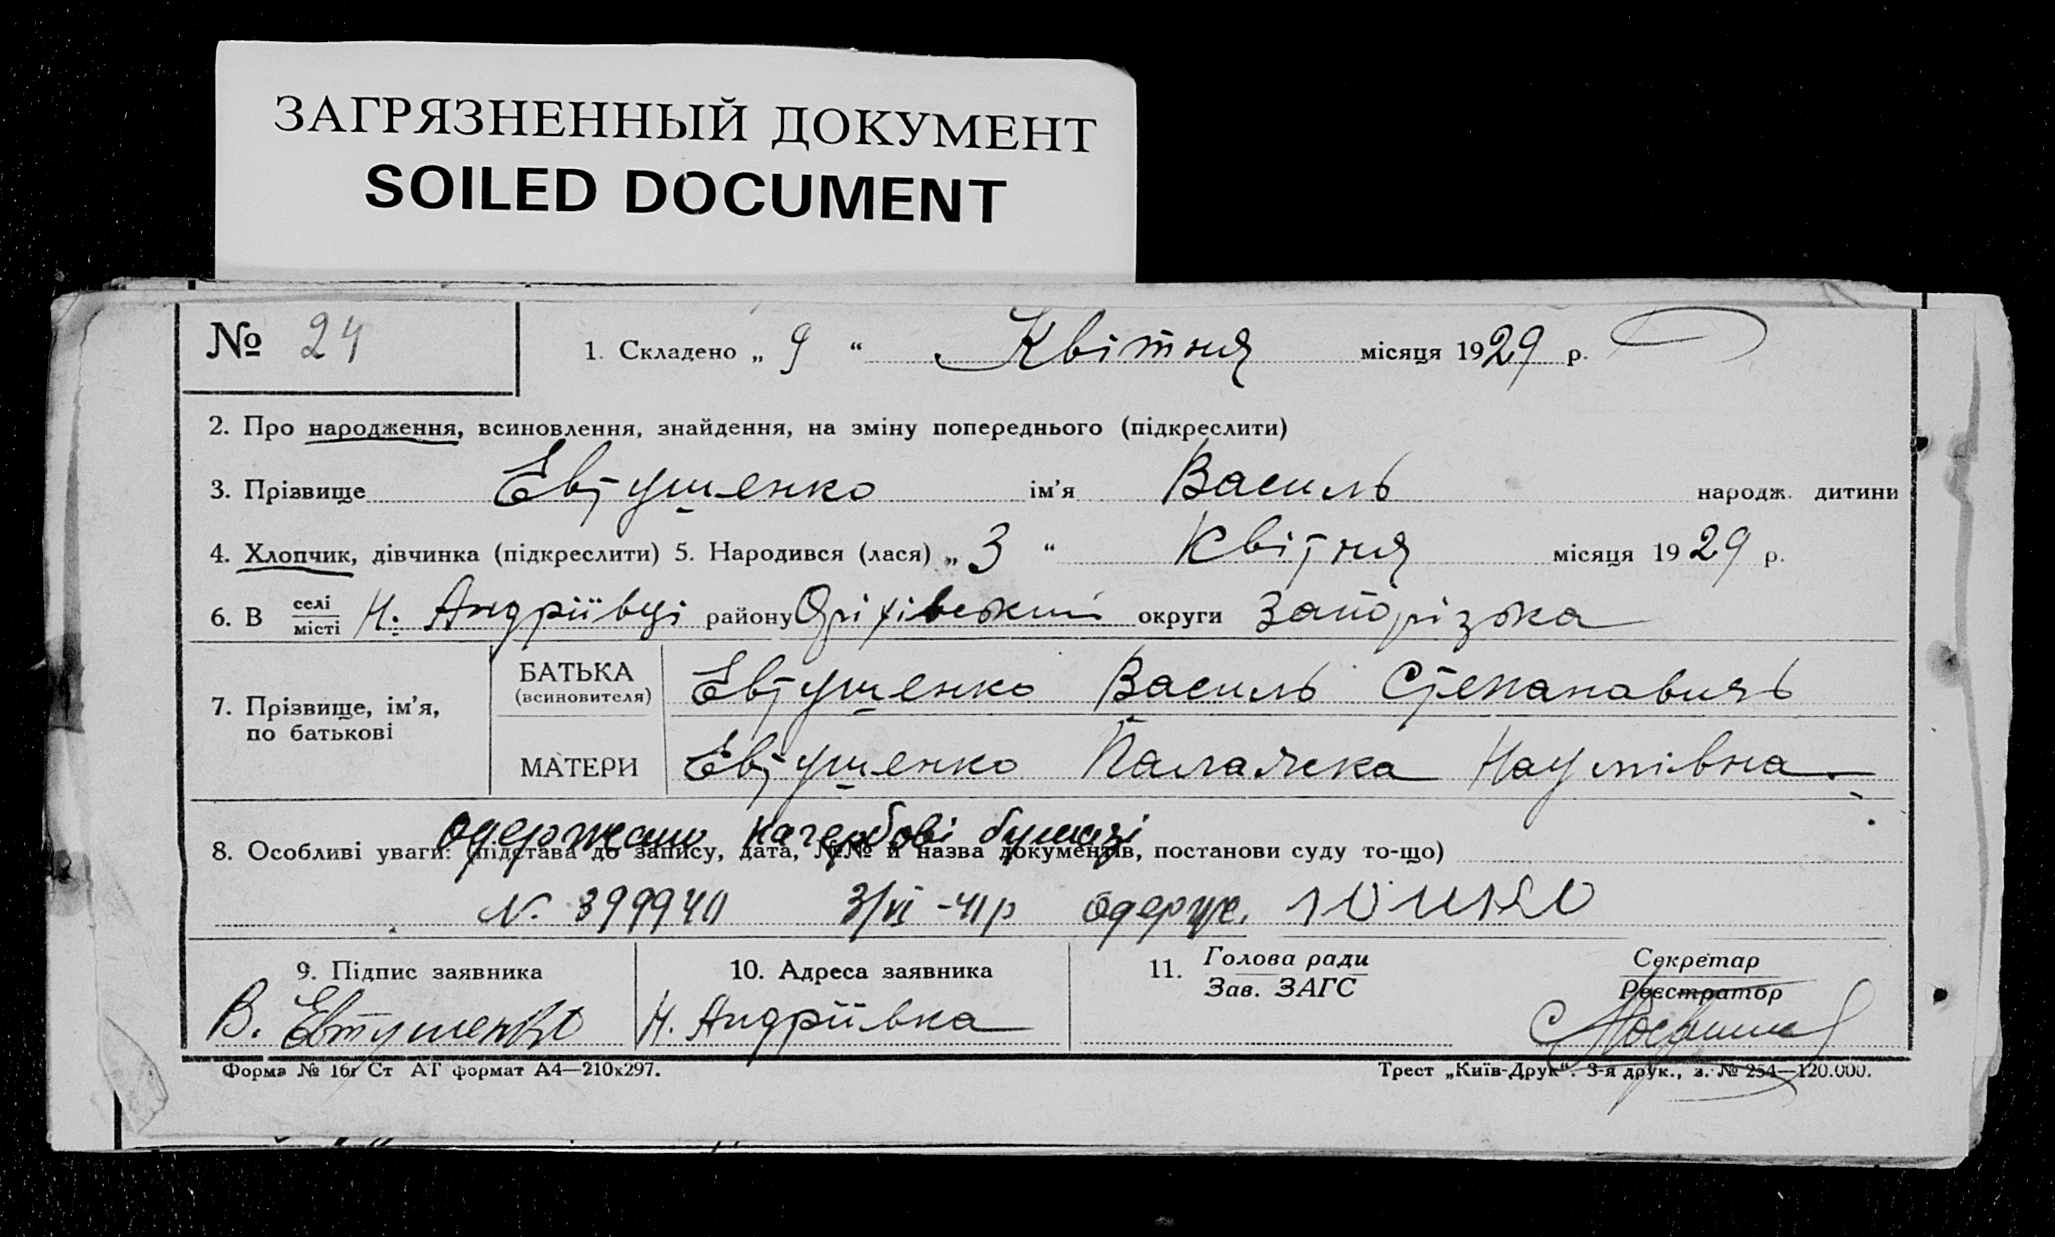 ЗАГРЯЗНЕННЫЙ ДОКУМЕНТ
SOILED DOCUMENT
№ 24
1. Складено „ 9 “ Квітня місяця 1929 р.
2. Про народження, всиновлення, знайдення, на зміну попереднього (підкреслити)
3. Прізвище Евтушенко ім’я Василь народж. дитини
4. Хлопчик, дівчинка (підкреслити) 5. Народився (лася) „ 3 “ Квітня місяця 1929 р.
6. В селі місті Н. Андріївці району Оріхівський округи Запорізька
7. Прізвище, ім’я, по батькові
БАТЬКА (всиновителя) Евтушенко Василь Степановичь
МАТЕРИ Евтушенко Палажка Наумівна
одержано на гербові бумазі
8. Особливі уваги: (підстава до запису, дата, №№ й назва документів, постанови суду то-що)
N. 399940 3/VI -41р одерж.
9. Підпис заявника
В. Евтушенко
10. Адреса заявника
Н. Андріівка
11. Голова ради
Зав. ЗАГС
Секретар
Реєстратор
Форма № 16г Ст АГ формат А4—210х297.
Трест „Київ-Друк“. 3-я друк., з. № 254—120.000.